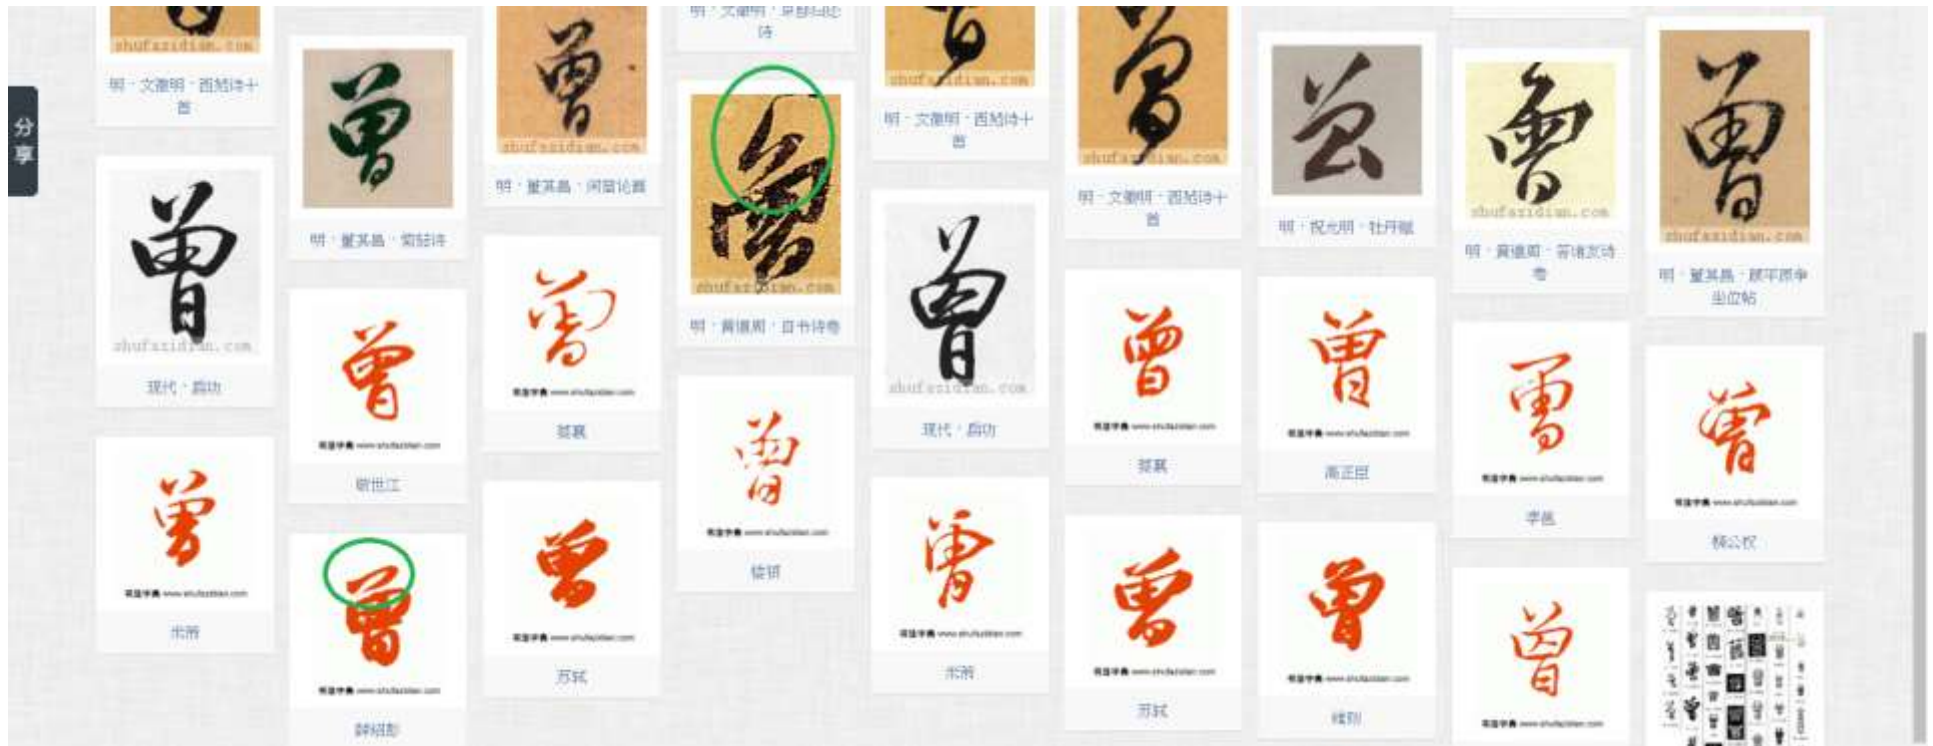 分
享
shufazidian.com
明·文徵明·西苑诗十
首
曾
shufazidian.com
现代·启功
曾
米芾
曾
明·董其昌·菊花诗
曾
书法字典 www.shufazidian.com
曾
书法字典 www.shufazidian.com
薛绍彭
曾
shufazidian.com
曾
书法字典 www.shufazidian.com
蔡襄
曾
书法字典 www.shufazidian.com
苏轼
诗
曾
shufazidian.com
明·黄道周·自书诗卷
曾
书法字典 www.shufazidian.com
shufazidian.com
明·文徵明·西苑诗十
首
曾
shufazidian.com
现代·启功
曾
书法字典 www.shufazidian.com
米芾
曾
shufazidian.com
明·文徵明·西苑诗十
首
曾
书法字典 www.shufazidian.com
蔡襄
曾
书法字典 www.shufazidian.com
苏轼
曾
明·祝允明·牡丹赋
曾
书法字典 www.shufazidian.com
高正臣
曾
书法字典 www.shufazidian.com
曾
shufazidian.com
明·黄道周·答诸友诗
卷
曾
书法字典 www.shufazidian.com
李邕
曾
书法字典 www.shufazidian.com
曾
shufazidian.com
明·董其昌·颜平原争
坐位帖
曾
书法字典 www.shufazidian.com
杨公权